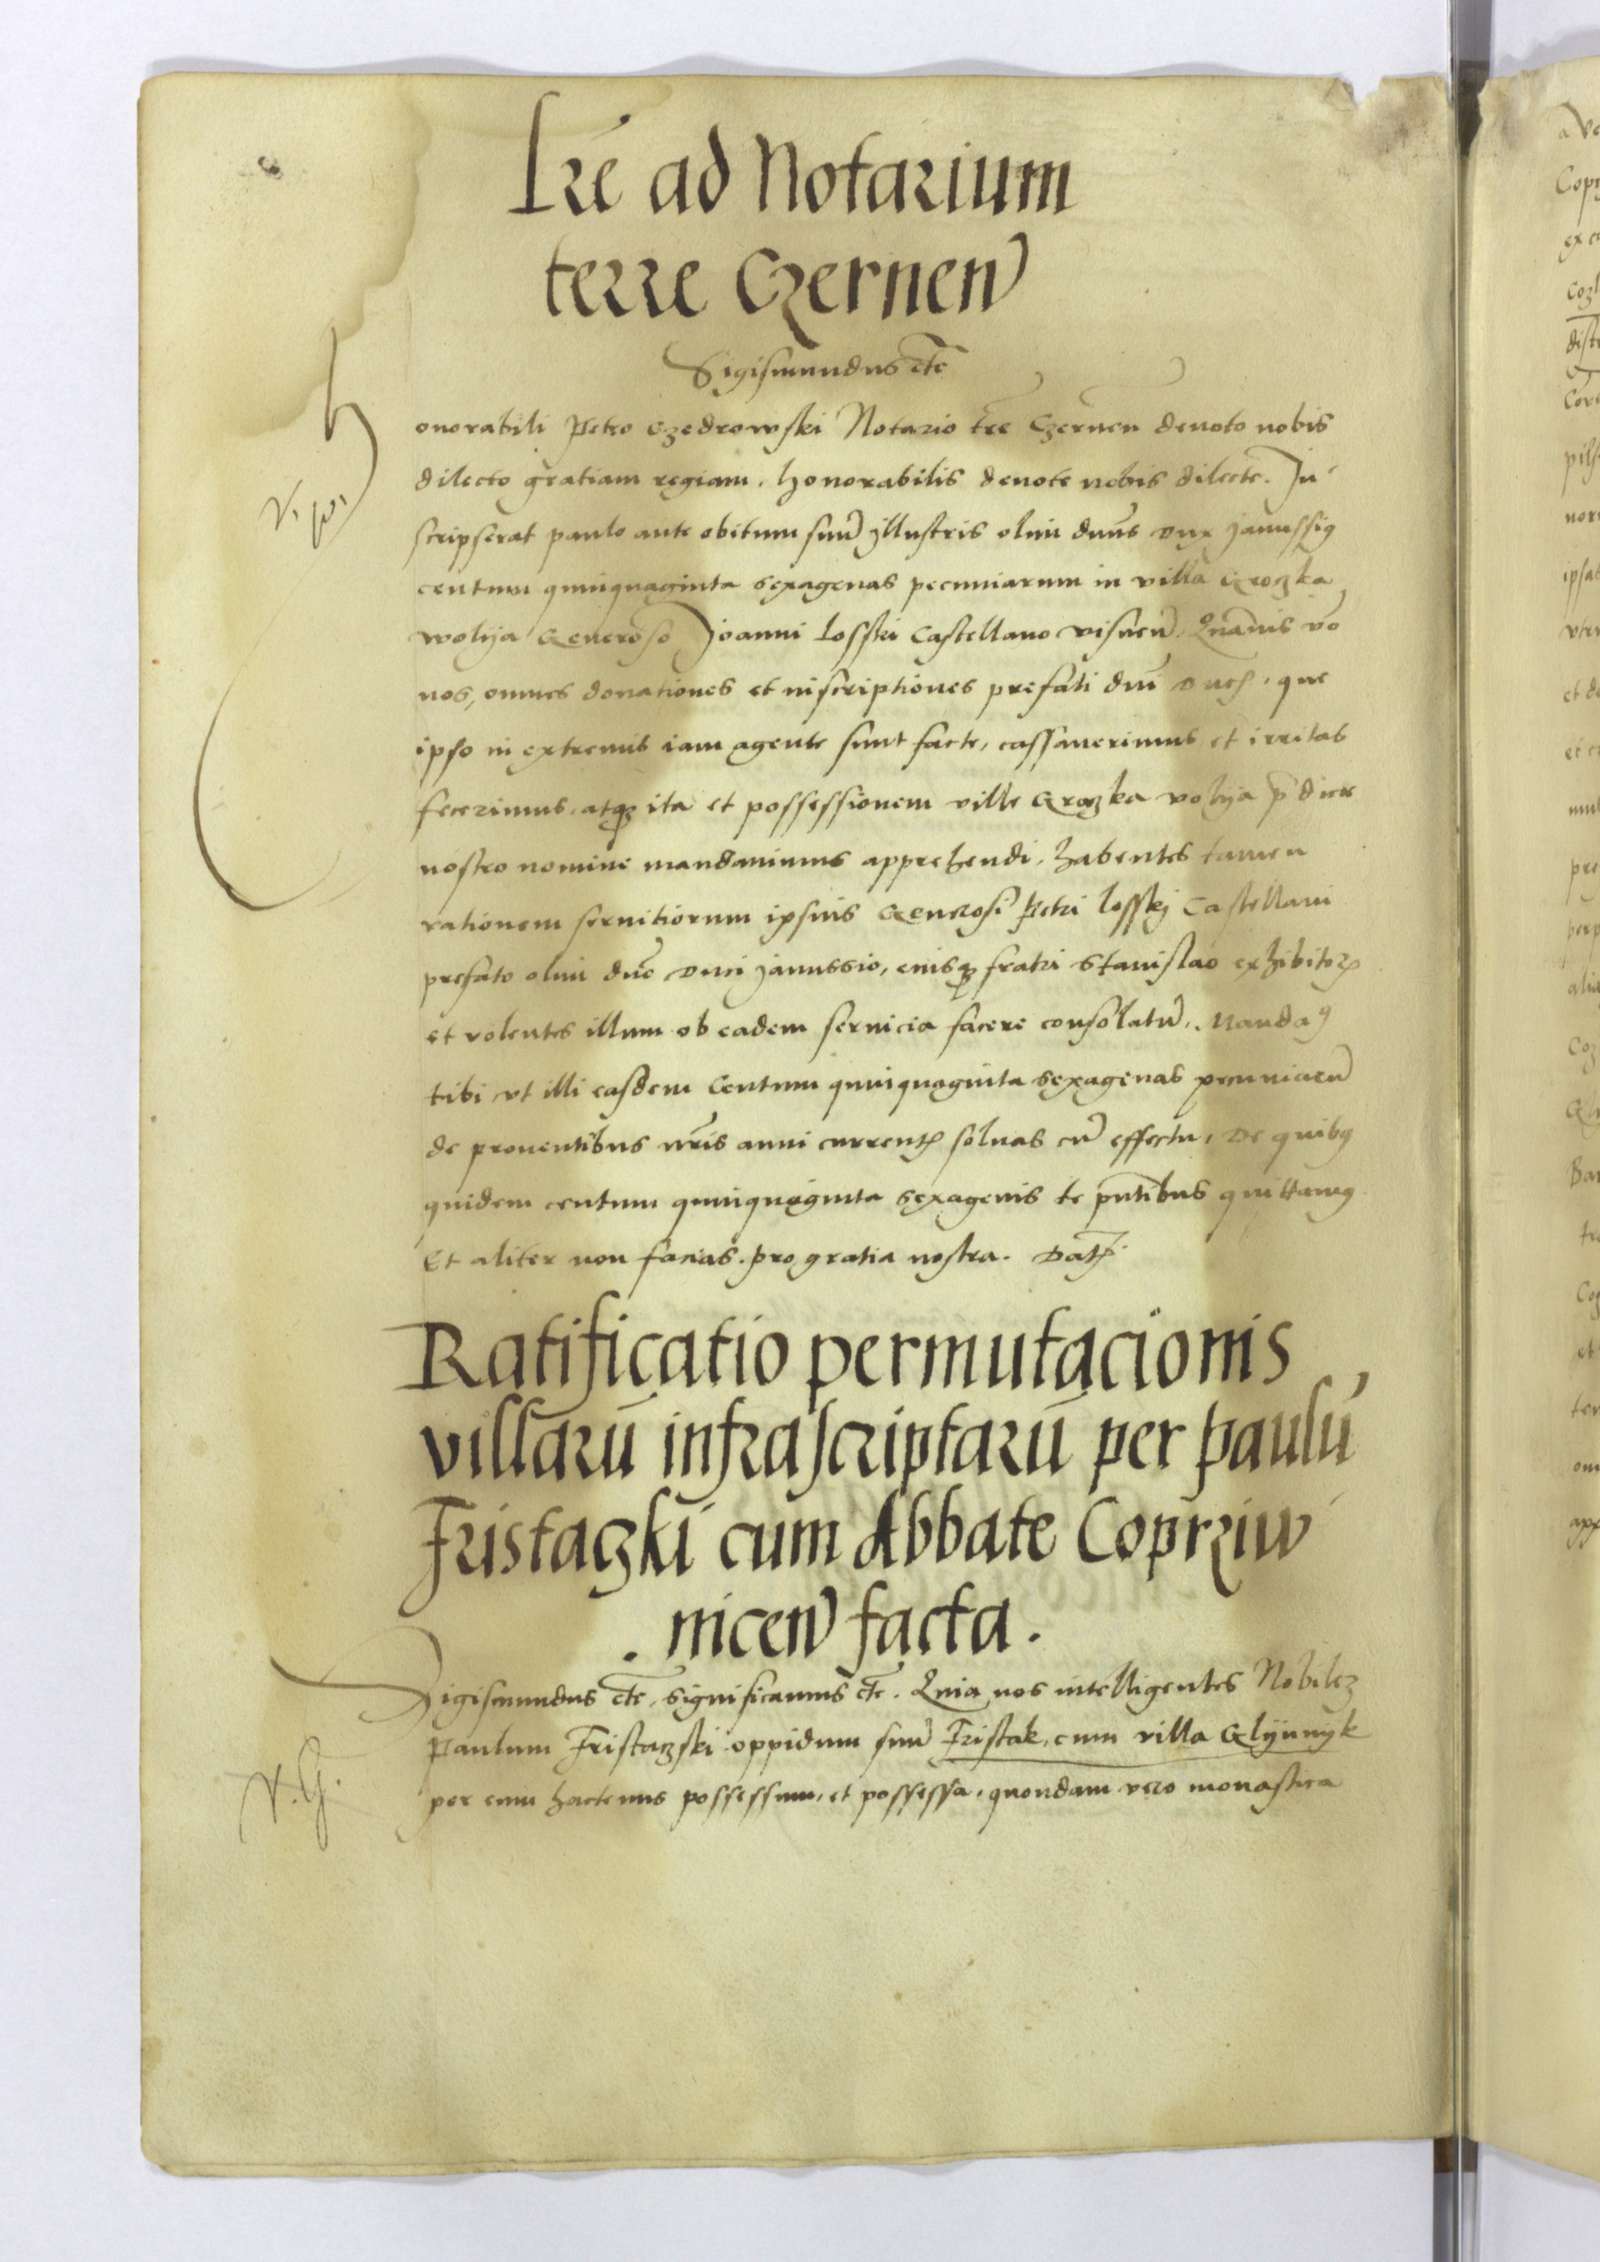 Lre ad Notarium
terre Czernen
Sigismundus etc
Honorabili Petro Czedrowski Notario tre Czernen devoto nobis
dilecto gratiam regiam. Honorabilis devote nobis dilecte. In
scripserat paulo ante obitum suu Illustris olim dnus Dux Janussi9
centum quinquaginta sexagenas pecuniarum in villa Groczka
wolya Generoso Joanni Losski Castellano Visnen. Quamvis vo
nos, omnes donationes et inscriptiones prefati dni Ducis, que
ipso in extremis iam agente sunt facte, cassaverimus et irritas
fecerimus, atq3 ita et possessionem ville Groczka volya p dicte
nostro nomine mandavimus apprehendi, habentes tamen
rationem servitiorum ipsius Generosi Petri Losskj Castellani
prefato olim dno Duci Janussio, eiusq3 fratri Stanislao exhibitor
et volentes illum ob eadem servicia facere consolatu. Manda9
tibi ut illi easdem Centum quinquaginta sexagenas pecuniaru
de proventibus nris anni current solvas cu effectu, De quib9
quidem centum quinquaginta sexagenis te pntibus quittam9
Et aliter non facias. pro gratia nostra. Dat
Ratificatio permutacionis
villaru infrascriptaru per paulu
Fristaczki cum Abbate Coprziw
. nicen facta .
Sigismundus etc. significamus etc. Quia nos intelligentes Nobilez
Paulum Fristaczski oppidum suu Fristak, cum villa Glynnyk
per eum hactenus possessum, et possessa, quondam vero monastica
V. G.